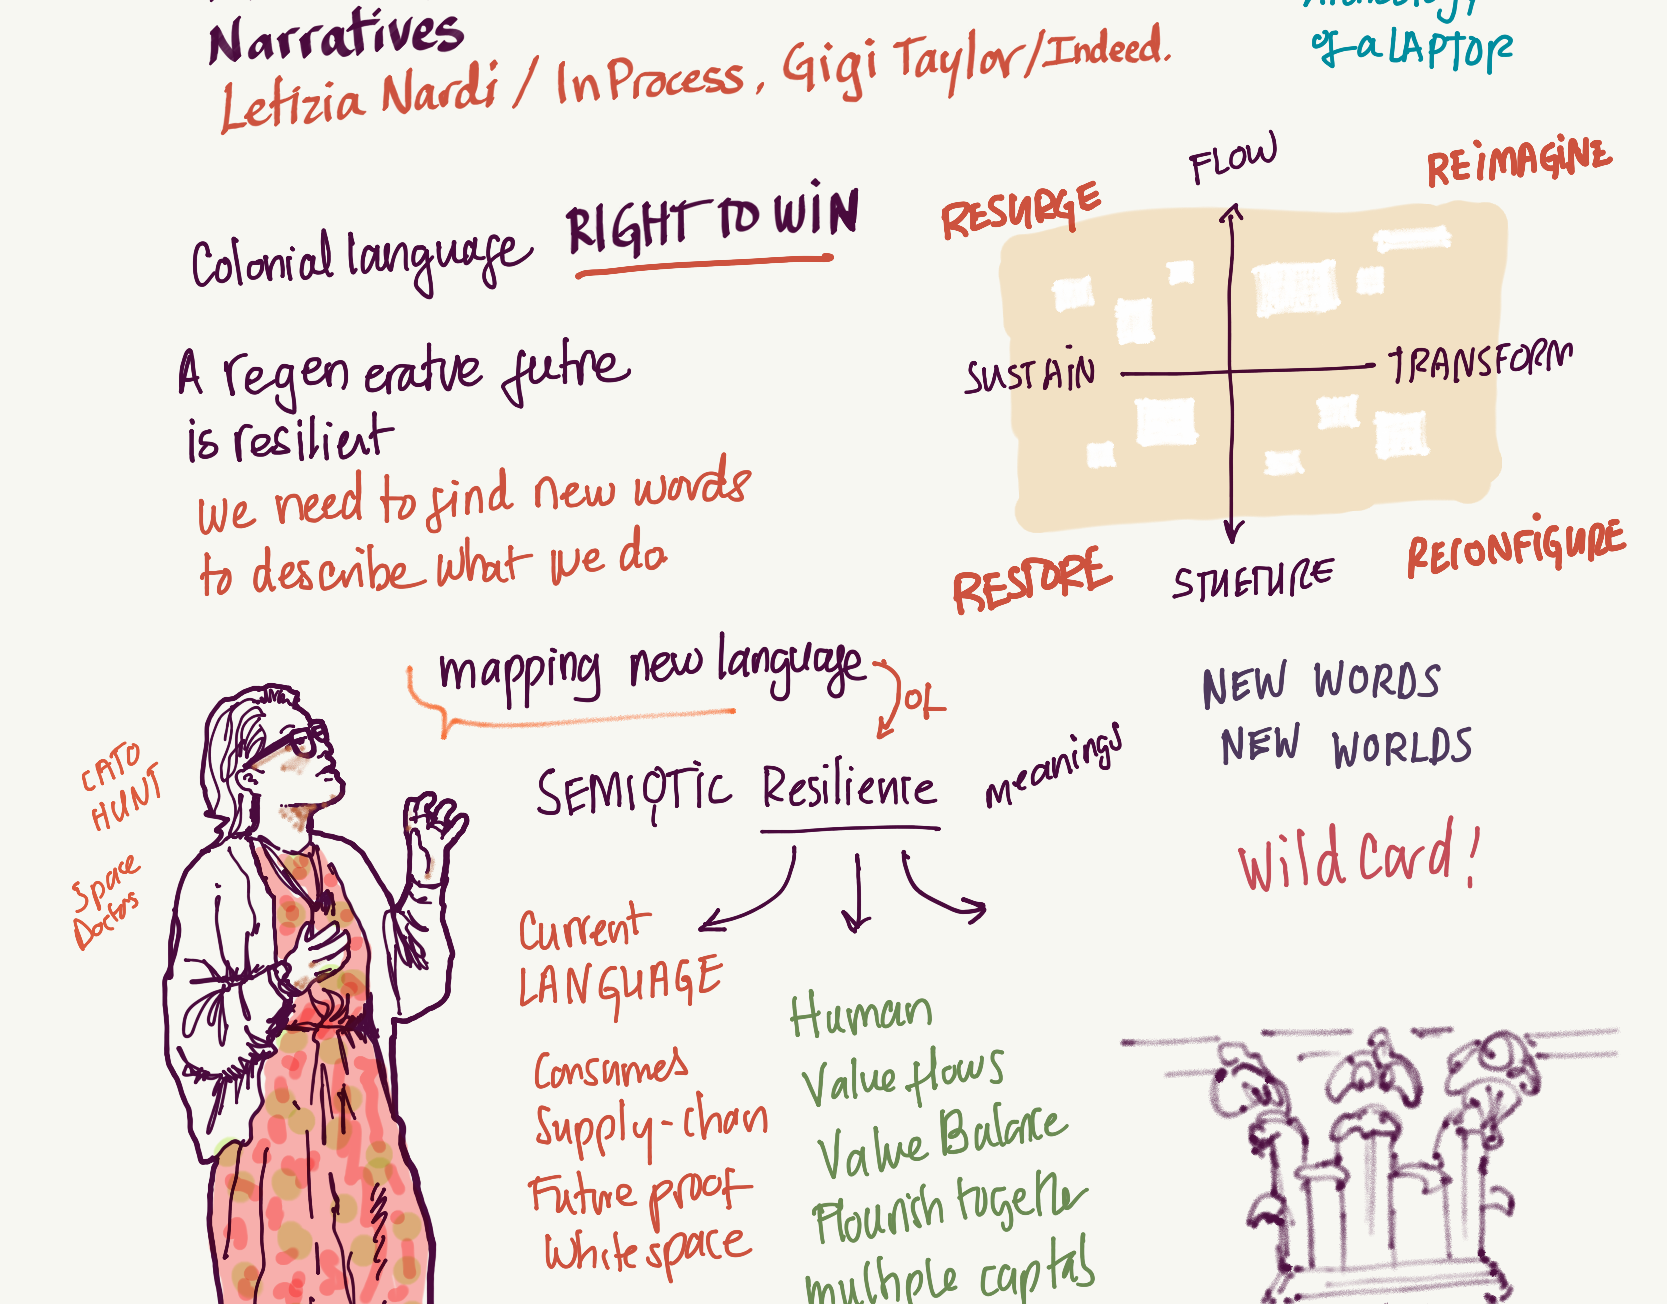 Narratives
Letizia Nardi / InProcess, Gigi Taylor/Indeed.
of a LAPTOP
Colonial language RIGHT TO WIN
A regenerative futre
is resilient
we need to find new words
to describe what we do
FLOW
RESURGE
REIMAGINE
SUSTAIN
TRANSFORM
RESTORE
STUETURE
RECONFIGURE
mapping new language
OL
SEMIOTIC Resilience
meanings
NEW WORDS
NEW WORLDS
Wild Card!
CATO
HUNT
Space
Doctors
Current
LANGUAGE
Consumes
Supply-chan
Future proof
White space
Human
Value flows
Value Balance
Flourish together
multiple captal